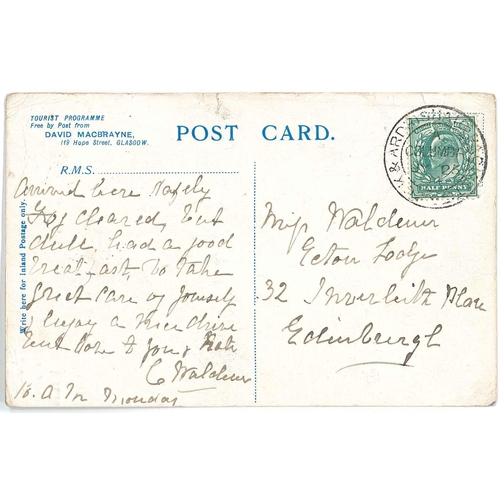 TOURIST PROGRAMME
Free by Post from
DAVID MACBRAYNE,
119 Hope Street, GLASGOW.
POST CARD.
R.M.S.
Write here for Inland Postage only.
Arrived here safely
Fog cleared, but
dull, had a good
Breakfast, do take
great care of yourself
& Enjoy a nice drive
best love to you &
C Waldeur
10. A M Monday
COLUMBA
HALF PENNY
Miss Waldeur
Ecton Lodge
32 Inverleith Place
Edinburgh